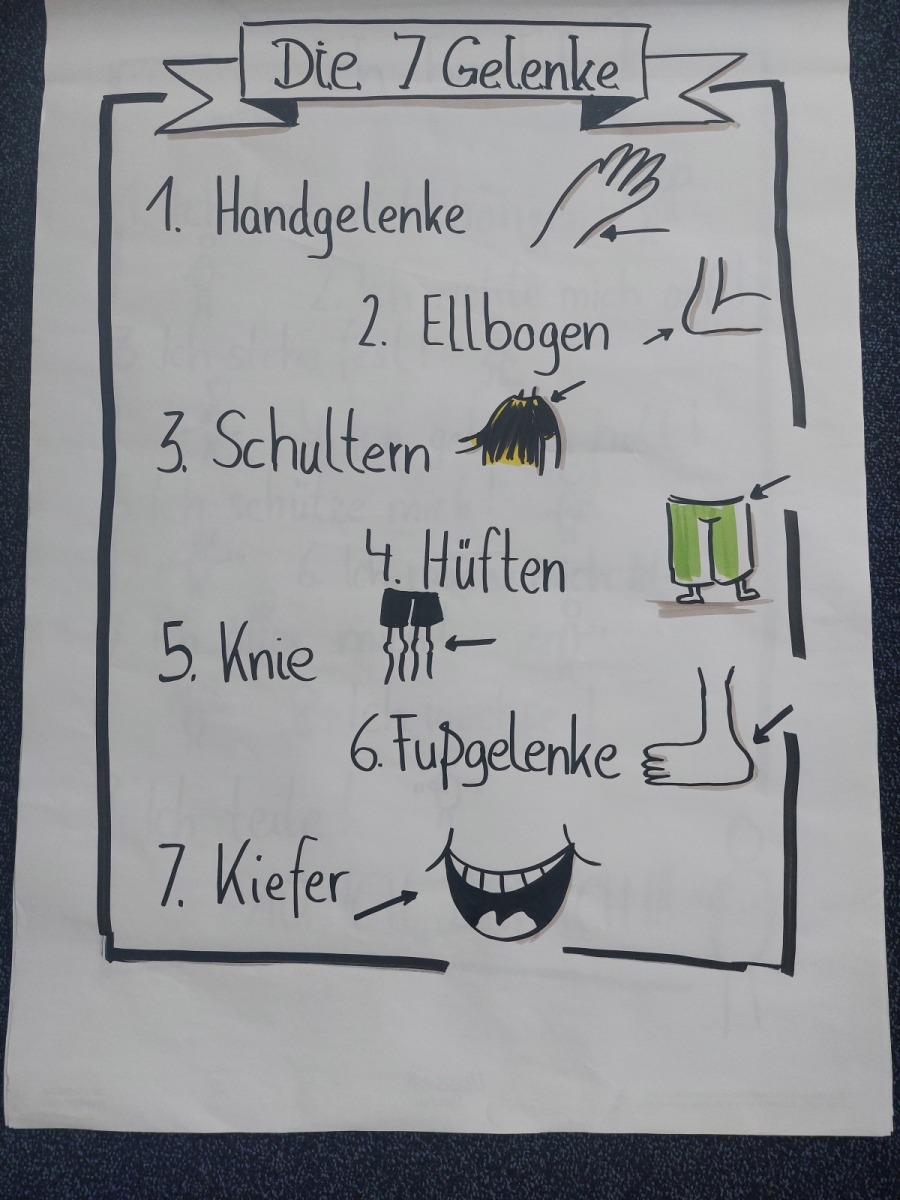 Die 7 Gelenke
1. Handgelenke
2. Ellbogen
3. Schultern
4. Hüften
5. Knie
6. Fußgelenke
7. Kiefer